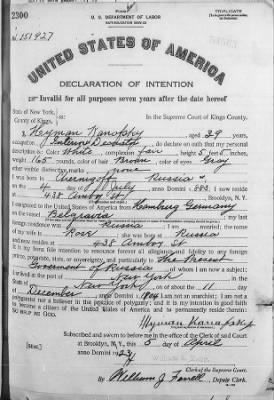 TRIPLICATE
2300
U. S. DEPARTMENT OF LABOR
NATURALIZATION SERVICE
No. 151927
UNITED STATES OF AMERICA
DECLARATION OF INTENTION
Invalid for all purposes seven years after the date hereof
State of New York,
County of Kings,
In the Supreme Court of Kings County.
I, Hyman Kanofsky, aged 29 years,
occupation, do declare on oath that my personal
description is: Color White, complexion fair, height 5 feet inches,
weight 165 pounds, color of hair Brown, color of eyes Gray
other visible distinctive marks none
I was born in Russia
on the 4 day of July, anno Domini 1; I now reside
at 438 St., Brooklyn, N.Y.
I emigrated to the United States of America from Hamburg Germany
on the vessel Belgravia; my last
foreign residence was Russia
I am married; the name of my wife is Rose; she was born at Russia
and now resides at 438 St
It is my bona fide intention to renounce forever all allegiance and fidelity to any foreign
prince, potentate, state, or sovereignty, and particularly to The Present
Government of Russia, of whom I am now a subject;
I arrived at the port of New York, in the
State of New York, on or about the 11 day
of December, anno Domini 1904; I am not an anarchist; I am not a
polygamist nor a believer in the practice of polygamy; and it is my intention in good faith
to become a citizen of the United States of America and to permanently reside therein:
SO HELP ME GOD.
Hyman Kanofsky
Subscribed and sworn to before me in the office of the Clerk of said Court
at Brooklyn, N.Y., this 5 day of April
anno Domini 19
[SEAL]
Clerk of the Supreme Court.
By William J. Farrell, Deputy Clerk.